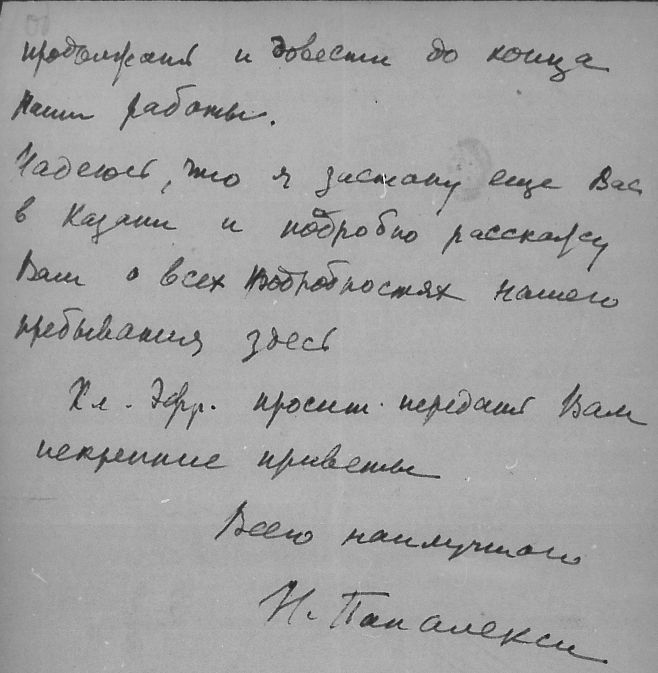 продолжать и довести до конца
наши работы.
Надеюсь, что я застану еще Вас
в Казани и подробно расскажу
Вам о всех подробностях нашего
пребывания здесь
Хл. Эфр. просит передать Вам
искренние приветы
Всего наилучшего
Н. Папалекси